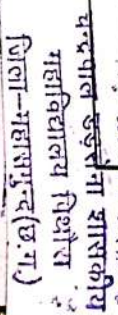 चन्द्रपाल डड़सेना शासकीय
महाविद्यालय पिथौरा
जिला-महासमुन्द(छ.ग.)